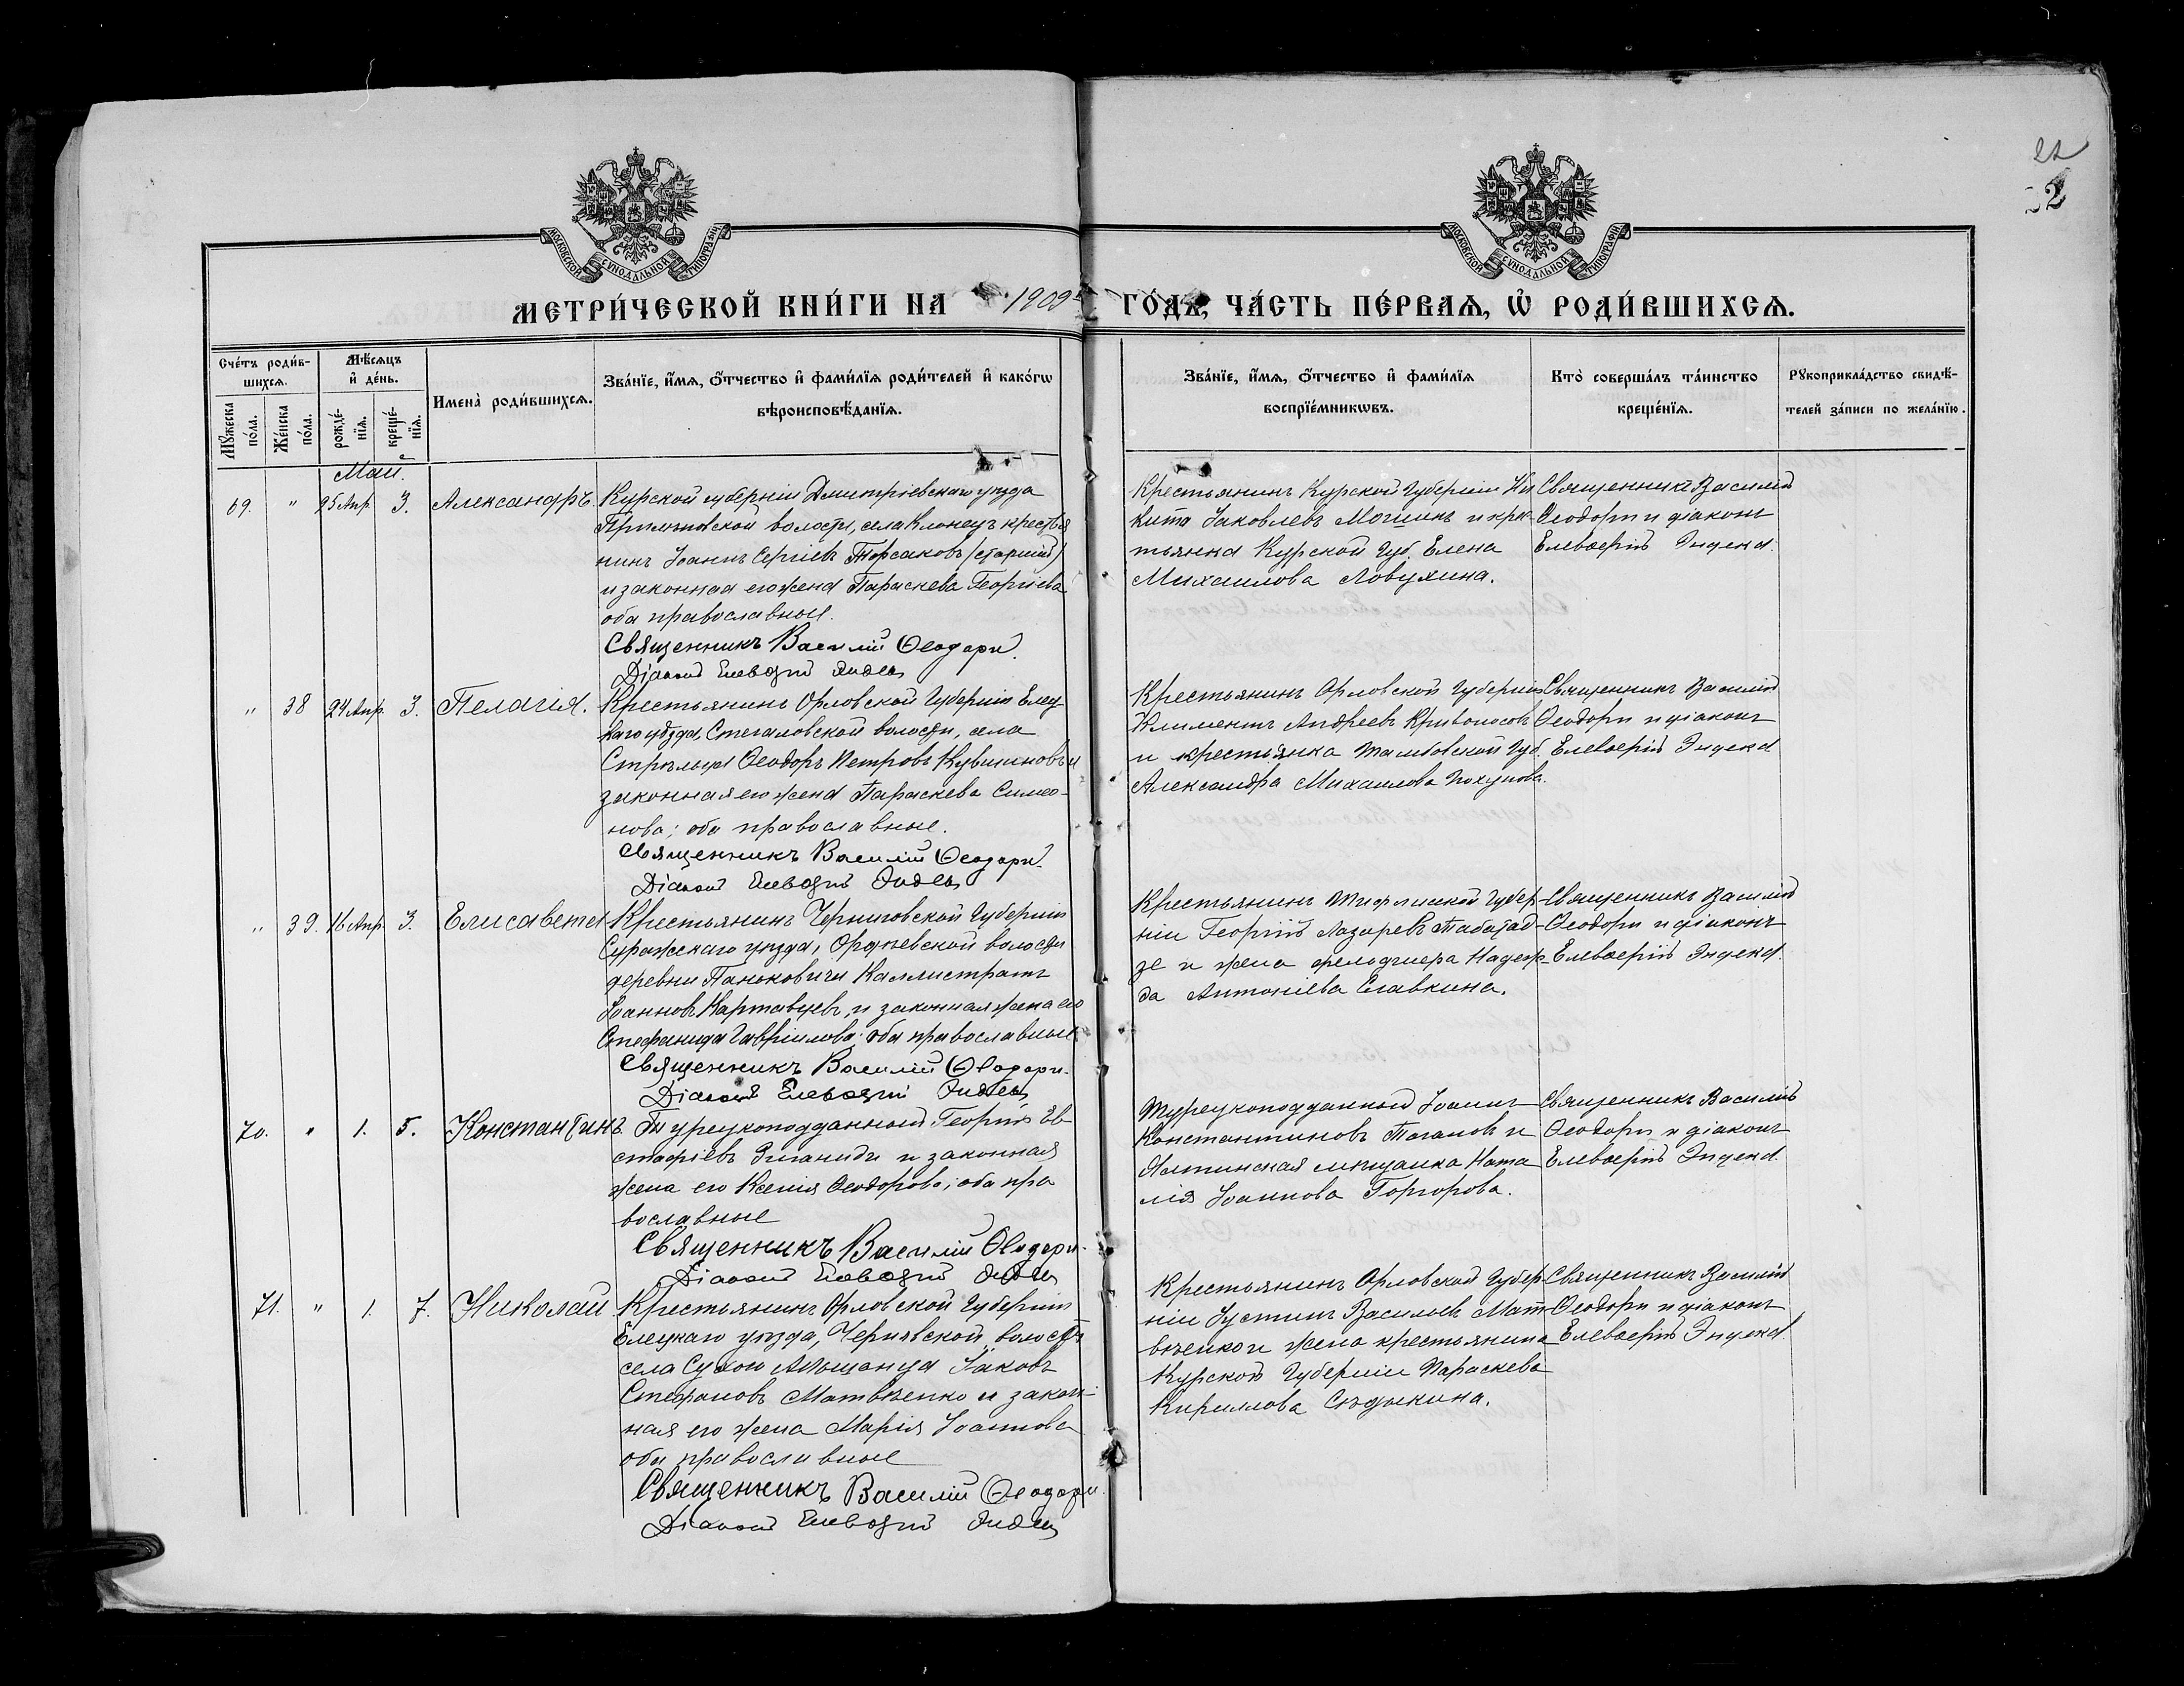 22
2
МОСКОВСКОЙ СѴНОДАЛЬНОЙ ТИПОГРАФІИ
МОСКОВСКОЙ СѴНОДАЛЬНОЙ ТИПОГРАФІИ
МЕТРИ́ЧЕСКОЙ КНИ́ГИ НА 1909 ГО́ДЪ, ЧА́СТЬ ПЕ́РВАѦ, Ѽ РОДИ́ВШИХСѦ.
Сче́тъ роди́вшихсѧ.
Мꙋ́жеска по́ла.
Же́нска по́ла.
Мѣ́сѧцъ и҆ де́нь.
рожде́нїѧ.
креще́нїѧ.
Имена̀ роди́вшихсѧ.
Зва́нїе, и҆́мѧ, ѻ҆́тчество и҆ фами́лїѧ роди́телей и҆ како́гѡ
вѣроисповѣ́данїѧ.
Зва́нїе, и҆́мѧ, ѻ҆́тчество и҆ фами́лїѧ
воспрїе́мникѡвъ.
Кто̀ соверша́лъ та́инство
креще́нїѧ.
Рꙋкоприкла́дство свидѣ́-
телей за́писи по жела́нїю.
Май.
69. " 25 Апр. 3. Александръ.
Курской губерніи Дмитріевскаго уѣзда
волости, села Клонецъ крестья
нинъ Іоаннъ Сергіевъ (старшій)
и законная его жена Параскева Георгіева
оба православные.
Священникъ Василій Ѳеодори.
Діаконъ Елевѳерій
Крестьянинъ Курской Губерніи Ни
кита Іаковлевъ и крес-
тьянка Курской Губ. Елена
Михаилова Ловухина.
Священникъ Василій
Ѳеодори и діаконъ
Елевѳерій
" 38 24 Апр. 3. Пелагія.
Крестьянинъ Орловской Губерніи Елец
каго уѣзда, Стегаловской волости, села
Стрѣльца Ѳеодоръ Петровъ и
законная его жена Параскева Симео-
нова; оба православные.
Священникъ Василій Ѳеодори.
Діаконъ Елевѳерій
Крестьянинъ Орловской Губерніи
Климентъ Андреевъ Кривоносовъ
и крестьянка Тамбовской Губ.
Александра Михаилова
Священникъ Василій
Ѳеодори и діаконъ
Елевѳерій
" 39. 16 Апр. 3. Елисавета
Крестьянинъ Черниговской Губерніи
Суражскаго уѣзда, волости
деревни Паньковичи Каллистратъ
Іоанновъ Картавцевъ, и законная жена его
Стефанида Гавріилова; оба православные
Священникъ Василій Ѳеодори.
Діаконъ Елевѳерій
Крестьянинъ Тифлисской Губер-
ніи Георгій Лазаревъ Табатад-
зе и жена фельдшера Надеж-
да Антоніева Славкина.
Священникъ Василій
Ѳеодори и діаконъ
Елевѳерій
70. " 1. 5. Константинъ.
Турецкоподданный Георгій Ев
стафіевъ и законная
жена его Ксенія Ѳеодорова; оба пра
вославные
Священникъ Василій Ѳеодори.
Діаконъ Елевѳерій
Турецкоподданный Іоаннъ
Константиновъ и
Ялтинская мѣщанка Ната
лія Іоаннова
Священникъ Василій
Ѳеодори и діаконъ
Елевѳерій
71. " 1. 7. Николай
Крестьянинъ Орловской Губерніи
Елецкаго уѣзда, Чернавской волости
села Іаковъ
Стефановъ Матвѣенко и закон-
ная его жена Марія Іоаннова
оба православные
Священникъ Василій Ѳеодори.
Діаконъ Елевѳерій
Крестьянинъ Орловской Губер-
ніи Іустинъ Васильевъ Мат-
вѣенко и жена крестьянина
Курской Губерніи Параскева
Кириллова Сѣдыкина.
Священникъ Василій
Ѳеодори и діаконъ
Елевѳерій